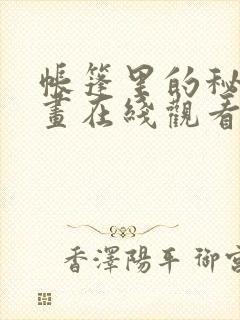 帳篷里的秘
畫在綫觀看
香澤陽平 御宮